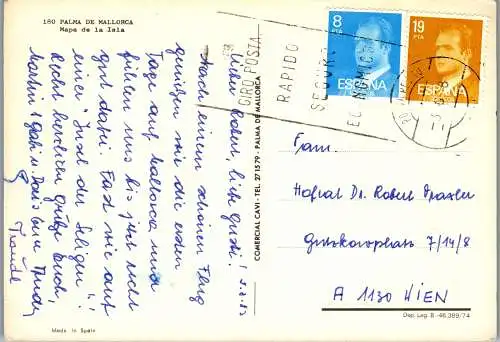 180 PALMA DE MALLORCA
Mapa de la Isla
Lieber Robert, liebe Gusti!
Nach einem schönen Flug
genießen wir die ersten
Tage auf Mallorca und
fühlen uns bis jetzt recht
gut dabei. Fast wie auf
einer "Insel der Seligen"!
Recht herzliche Grüße Euch,
Martin + Gabi u.
Traude
Made in Spain
COMERCIAL CAVI - TEL. 271579 - PALMA DE MALLORCA
GIRO POSTA
RAPIDO
SEGURO
ECONOMICO
8
PTA
ESPAÑA
19
PTA
ESPAÑA
Fam.
Hofrat Dr. Robert
7/14/8
A 1130 WIEN
Dep. Leg. B - 46.389/74